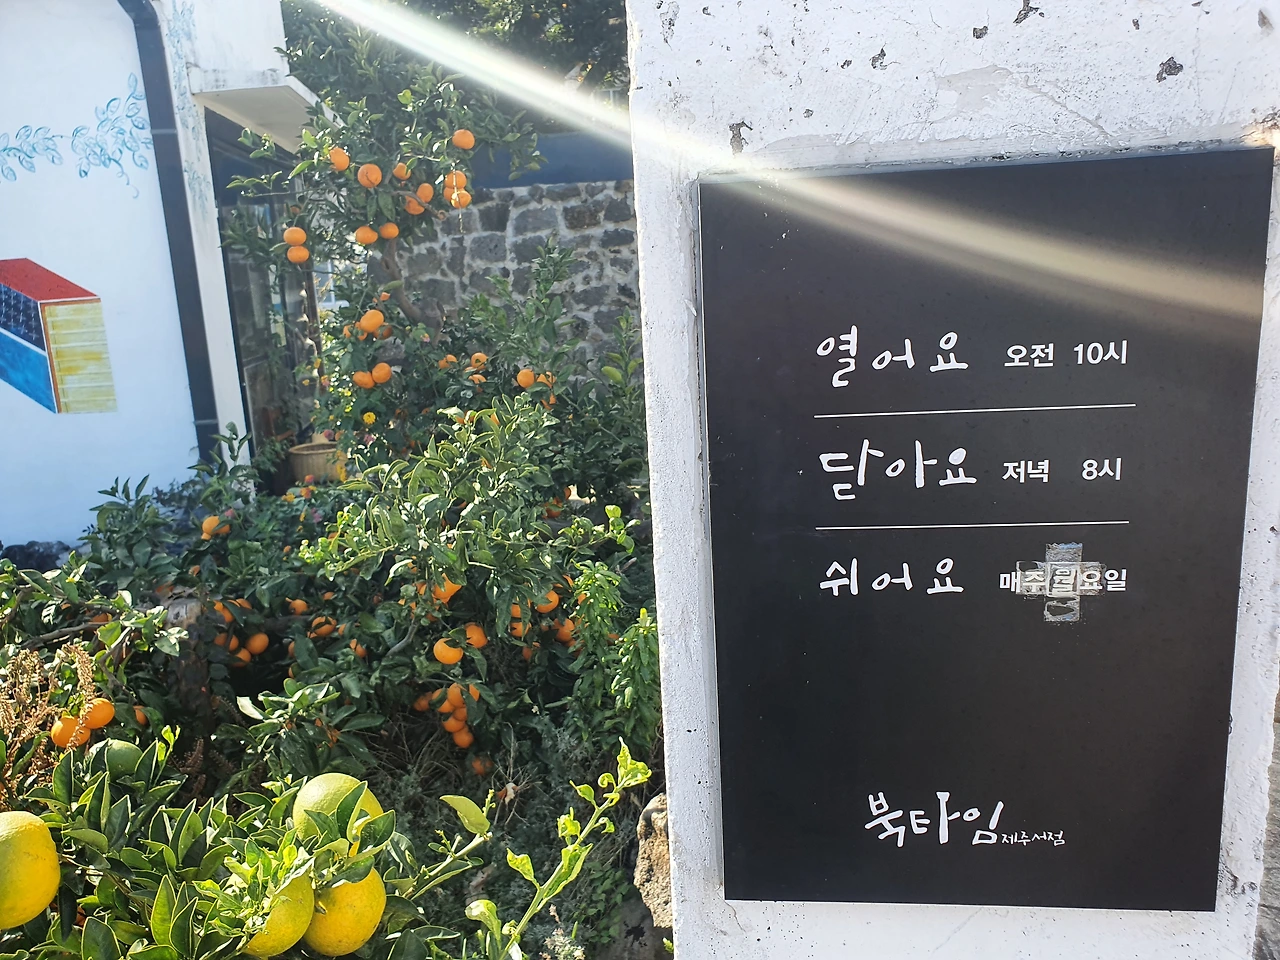 열어요 오전 10시
닫아요 저녁 8시
쉬어요 매주 월요일
북타임 제주서점